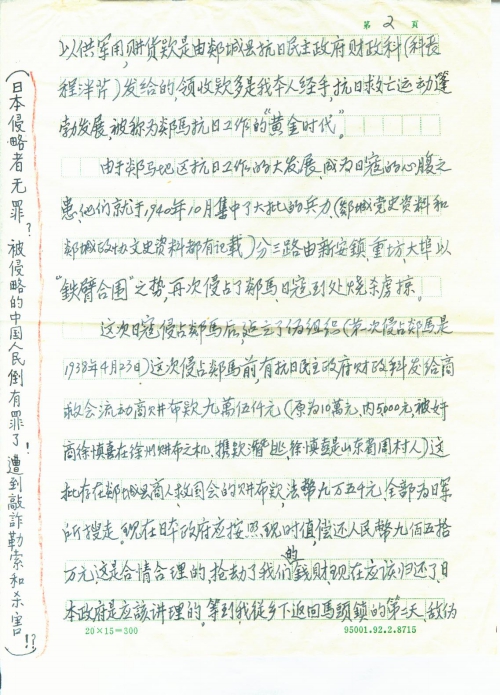 第2页
以供军用,购货款是由郯城县抗日民主政府财政科(科长
程泮芹)发给的,领收款多是我本人经手,抗日救亡运动蓬
勃发展,被称为郯马抗日工作的"黄金时代"。
由于郯马地区抗日工作的大发展,成为日寇的心腹之
患,他们就于1940年10月集中了大批的兵力,(郯城党史资料和
郯城政协文史资料都有记载)分三路由新安镇,重坊,大埠以
"鉄臂合围"之势,再次侵占了郯马,日寇到处烧杀虏掠。
这次日寇侵占郯马后,建立了伪组织(第一次侵占郯马是
1938年4月23日)这次侵占郯马前,有抗日民主政府财政科发给商
救会流动商购布款九萬伍仟元(原为10萬元,内5000元,被奸
商徐慎斋在徐州购布之机,携款潜逃,徐慎斋是山东省周村人)这
批存在郯城县商人救国会的购布款,法幣九万五千元,全部为日军
所搜走。现在日本政府应按照现时值,偿还人民幣九佰五拾
万元这是合情合理的,抢去了我们的钱财现在应该归还了,日
本政府是应該讲理的,等到我從乡下返回馬頭鎮的第二天,敌伪
20×15=300
95001.92.2.8715
(日本侵略者无罪?被侵略的中国人民倒有罪了!遭到敲詐勒索和杀害!?)